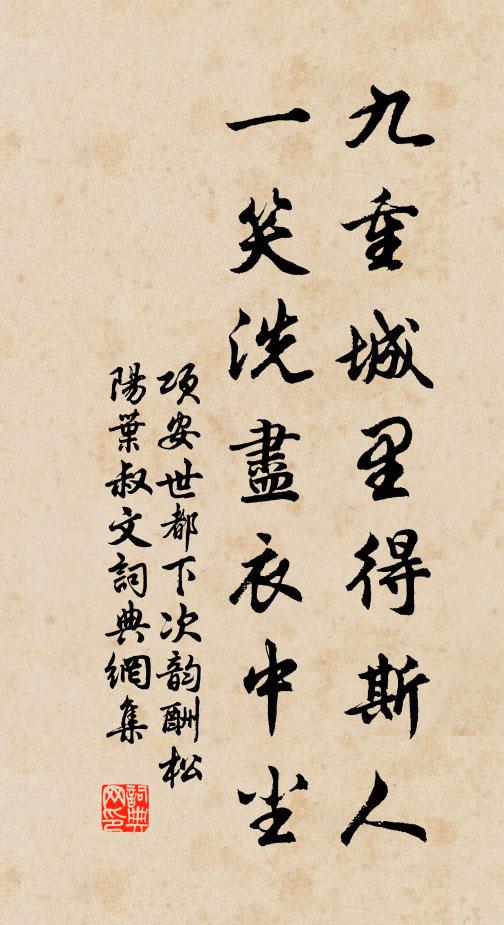 九重城里得斯人
一笑洗盡衣中尘
項安世都下次韵酬松
陽葉叔文詞典網集
詞典
网印